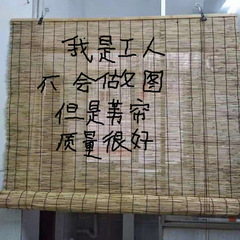 我是工人
不会做图
但是葦帘
质量很好